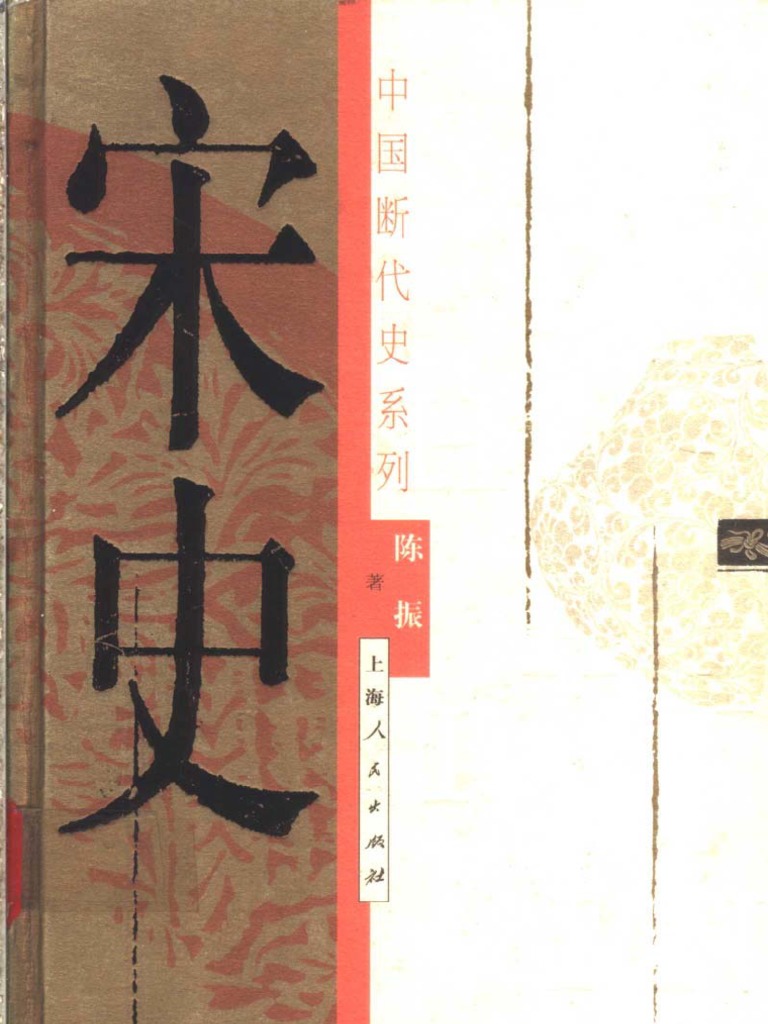 宋史
中国断代史系列
陈振
著
上海人民出版社